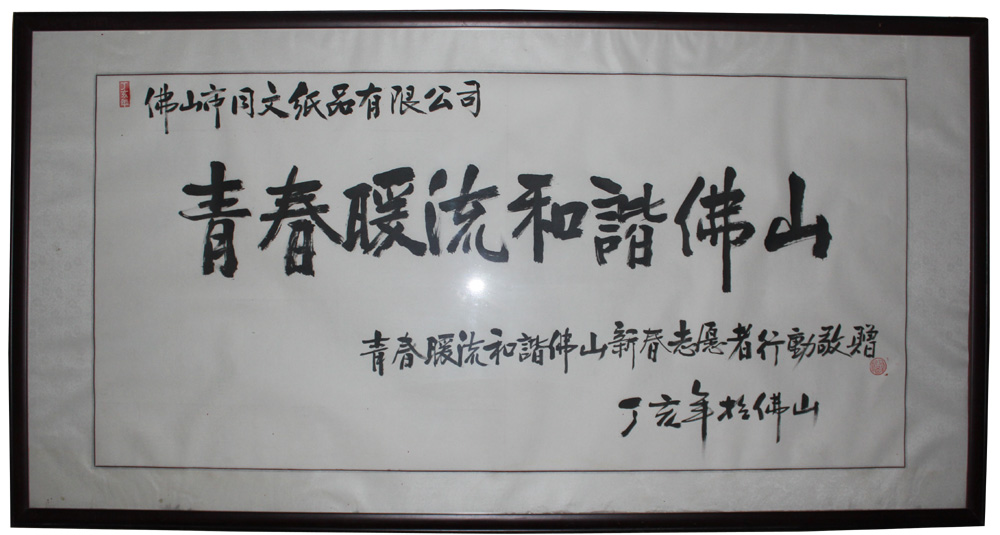 佛山市同文纸品有限公司
青春暖流和諧佛山
青春暖流和諧佛山新春志愿者行動敬贈
丁亥年於佛山